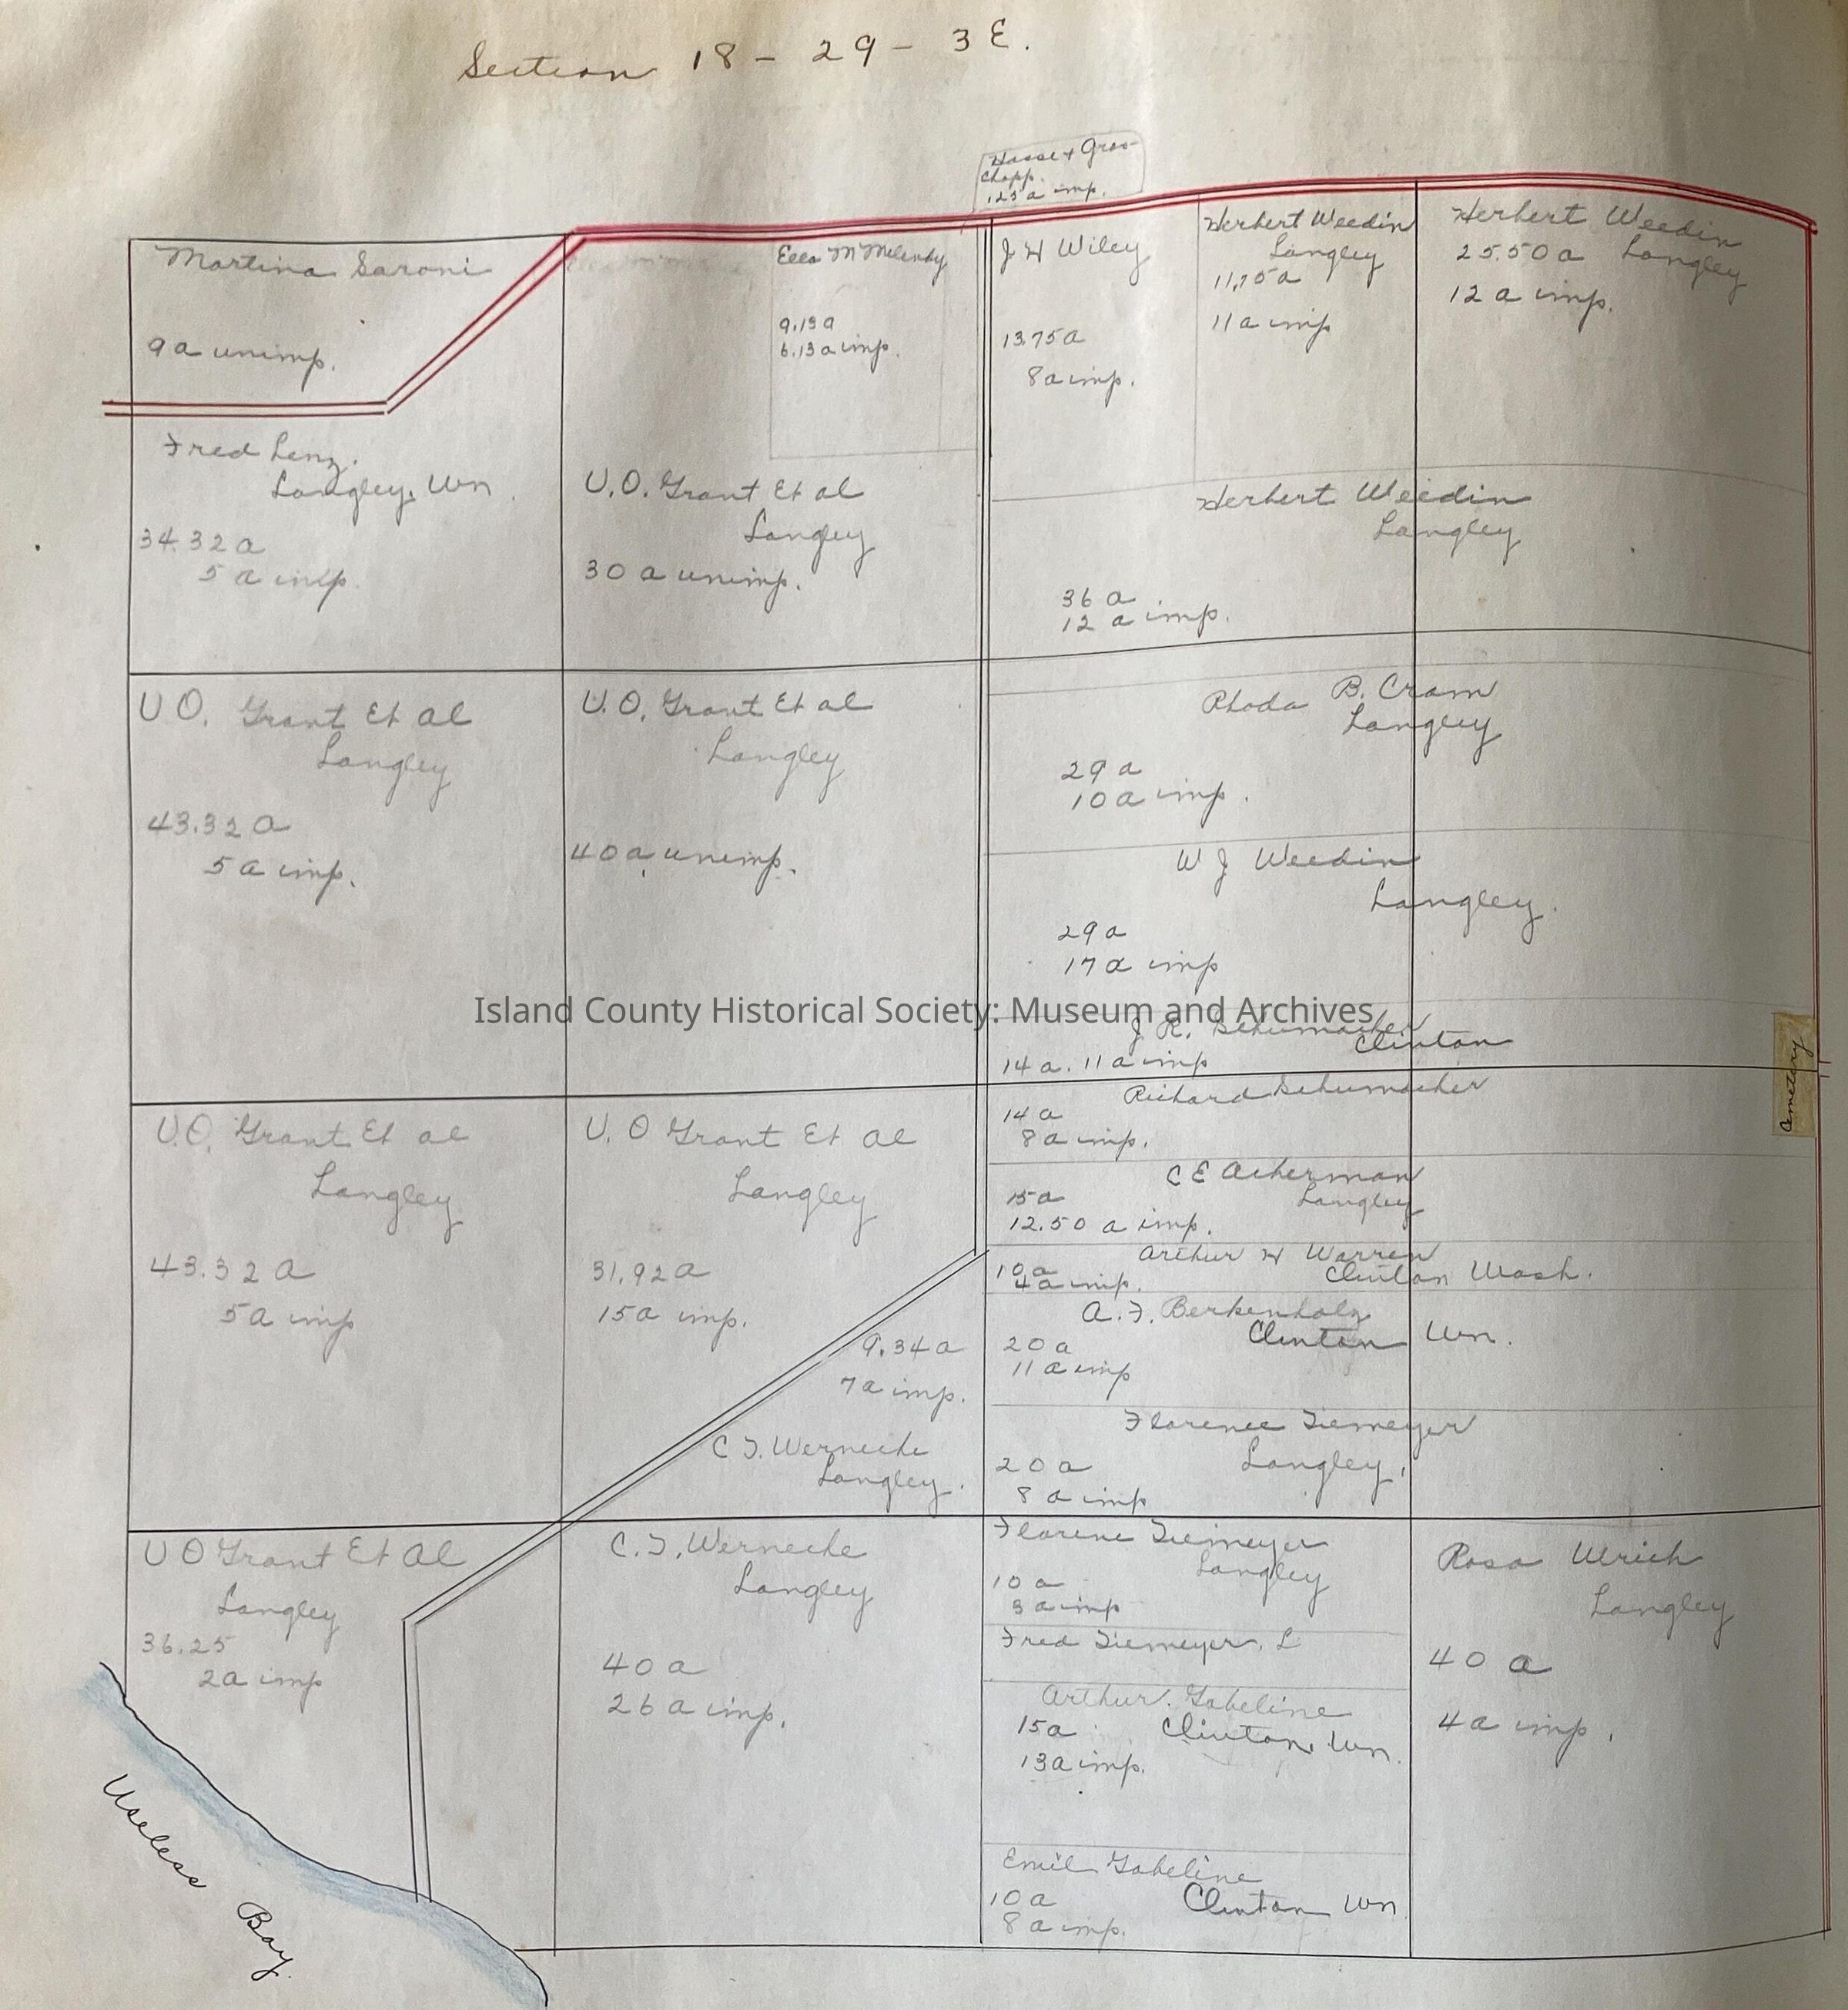 Section 18 - 29 - 3 E.
Hasse + Gros-
chopp.
1.25 a imp.
Martina Saroni
9 a unimp.
Ella M
9.13 a
6.13 a imp.
J H Wiley
13.75 a
8 a imp.
Herbert Weedin
Langley
11.75 a
11 a imp
Herbert Weedin
25.50 a Langley
12 a imp.
Fred Lenz.
Langley, Wn.
34.32 a
5 a imp.
U.O. Grant Et al
Langley
30 a unimp.
Herbert Weedin
Langley
36 a
12 a imp.
U O. Grant Et al
Langley
43.32 a
5 a imp.
U.O. Grant Et al
Langley
40 a unimp.
Rhoda B. Cram
Langley
29 a
10 a imp.
W J Weedin
Langley.
29 a
17 a imp
Island County Historical Society: Museum and Archives
J R. Schumacher
Clinton
14 a. 11 a imp
Cemetary
U.O. Grant Et al
Langley
43.32 a
5 a imp
U. O Grant Et al
Langley
31.92 a
15 a imp.
9.34 a
7 a imp.
C T. Werneche
Langley.
Richard Schumacher
14 a
8 a imp.
C E Ackerman
Langley
15 a
12.50 a imp.
Arthur H Warren
Clinton Wash.
10 a
4 a imp.
A. F. Berkenholz
Clinton Wn.
20 a
11 a imp
Florence Tiemeyer
Langley,
20 a
8 a imp
U O Grant Et Al
Langley
36.25
2 a imp
C. T. Werneche
Langley
40 a
26 a imp.
Florene Tiemeyer
Langley
10 a
3 a imp
Fred Tiemeyer, L
Arthur. Gabeline
15 a Clinton, Wn.
13 a imp.
Emil Gabeline
10 a Clinton Wn
8 a imp.
Rosa Ulrich
Langley
40 a
4 a imp.
Useless Bay